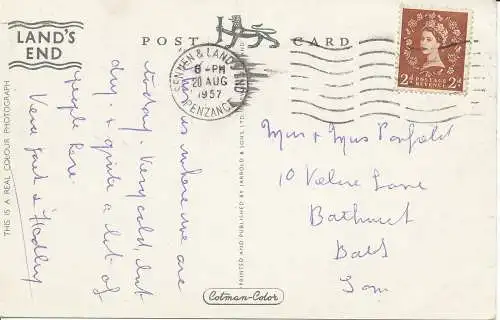 LAND'S
END
POST CARD
SENNEN & LAND'S END
8-PM
20 AUG
1957
PENZANCE
2d POSTAGE REVENUE 2d
This is where we are
today. Very cold but
dry. & quite a lot of
people here.
Vera Jack & Hedley
Mr & Mrs Penfold
10 Lane
Bathurst
Som
THIS IS A REAL COLOUR PHOTOGRAPH
PRINTED AND PUBLISHED BY JARROLD & SONS LTD
Cotman-Color